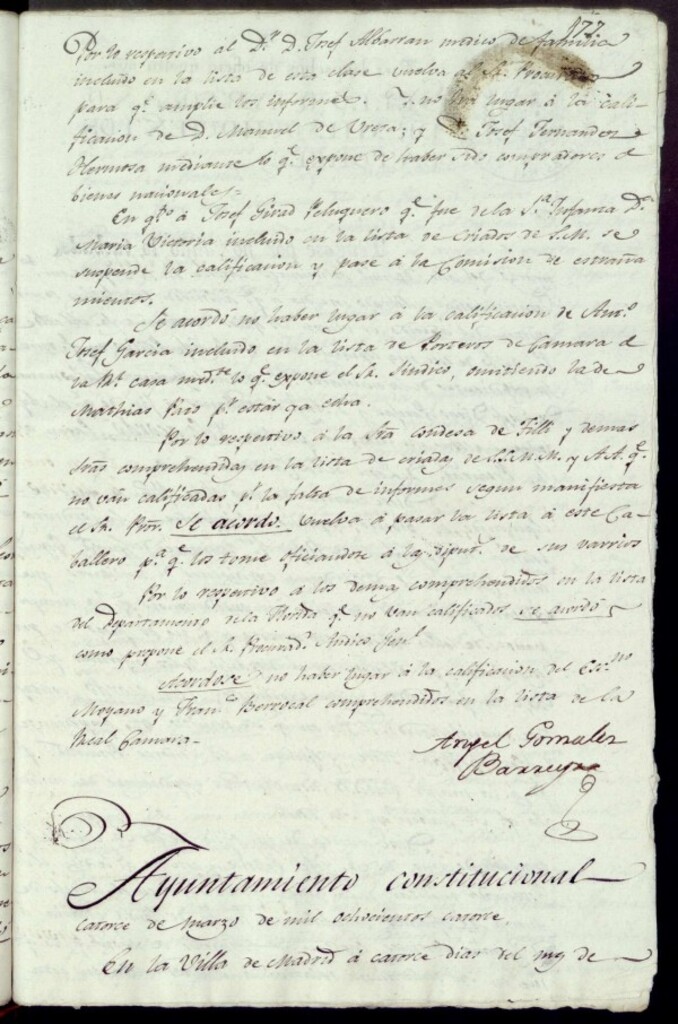 177
Por lo respectivo al Dr. D. Josef Albarran medico de familia
incluido en la lista de esta clase vuelva al Sr. Procurador
para qe. amplie los informes. Y no haya lugar á la cali-
ficacion de D. Manuel de ; y D. Josef Fernandez
Hermosa mediante lo qe. expone de haber sido compradores de
bienes nacionales=
En qto. á Josef Peluquero qe. fue de la Sa. Infanta Da.
Maria Victoria incluido en la lista de criados de S.M. se
suspende la calificacion y pase á la Comision de extraña
mientos.
Se acordó no haber lugar á la calificacion de Anto.
Josef Garcia incluido en la lista de Porteros de Camara de
la Rl. casa medte. lo qe. expone el Sr. Sindico, omitiendo la de
Mathias pr. estár ya echa.
Por lo respectivo á la Sra. condesa de y demas
Sras. comprehendidas en la lista de criadas de S.S.M.M. y A.A. qe.
no ván calificadas pr. la falta de informes segun manifiesta
el Sr. Pror. Se acordó vuelva á pasar la lista á este Ca-
ballero pa. qe. los tome oficiandose á los diput.s de sus varrios
Por lo respectivo á los demas comprehendidos en la lista
del Departamento de la Florida qe. no van calificados se acordó
como propone el Sr. Procurador. Sindico Jenl.
Acordose no haber lugar á la calificacion del Exmo.
Moyano y Franco. Berrocal comprehendidos en la lista de la
Real Camara.
Angel Gonzalez
Barreyro
Ayuntamiento constitucional
catorce de Marzo de mil ochocientos catorce.
En la Villa de Madrid á catorce dias del mes de